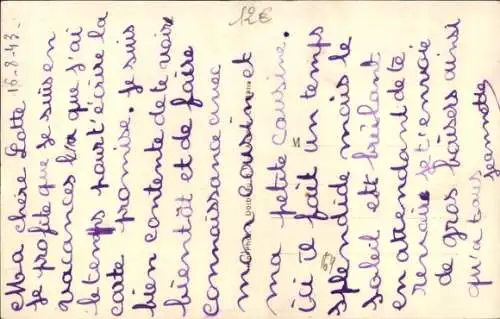 16-8-43.
Ma chère Lotte
Je profite que je suis en
vacances et que j'ai
le temps pour t'écrire la
carte promise. Je suis
bien contente de te voir
bientôt et de faire
connaissance avec
mon cousin et
ma petite cousine.
Ici il fait un temps
splendide mais le
soleil est brûlant
en attendant de te
revoir je t'envoie
de gros baisers ainsi
qu'à tous
Jeannette
12€